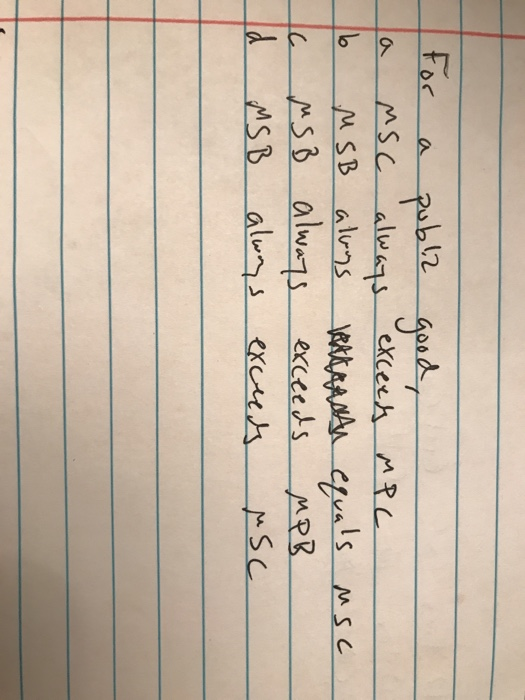 For a public good,
a MSC always exceeds MPC
b MSB always equals MSC
c MSB always exceeds MPB
d MSB always exceeds MSC